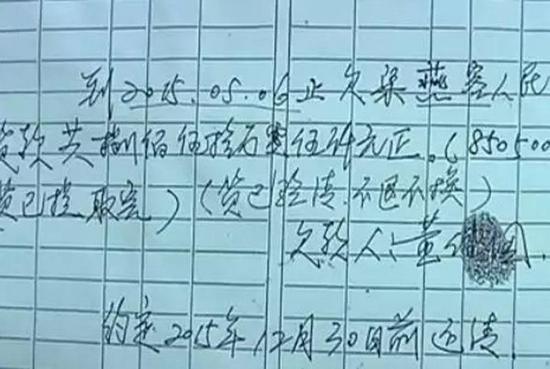 到2015.05.06止欠梁燕人民
货款共捌佰伍拾万零伍仟元正。(850500
货已提取完)(货已验清.不退不换)
欠款人:黄
约定2015年12月30日前还清.